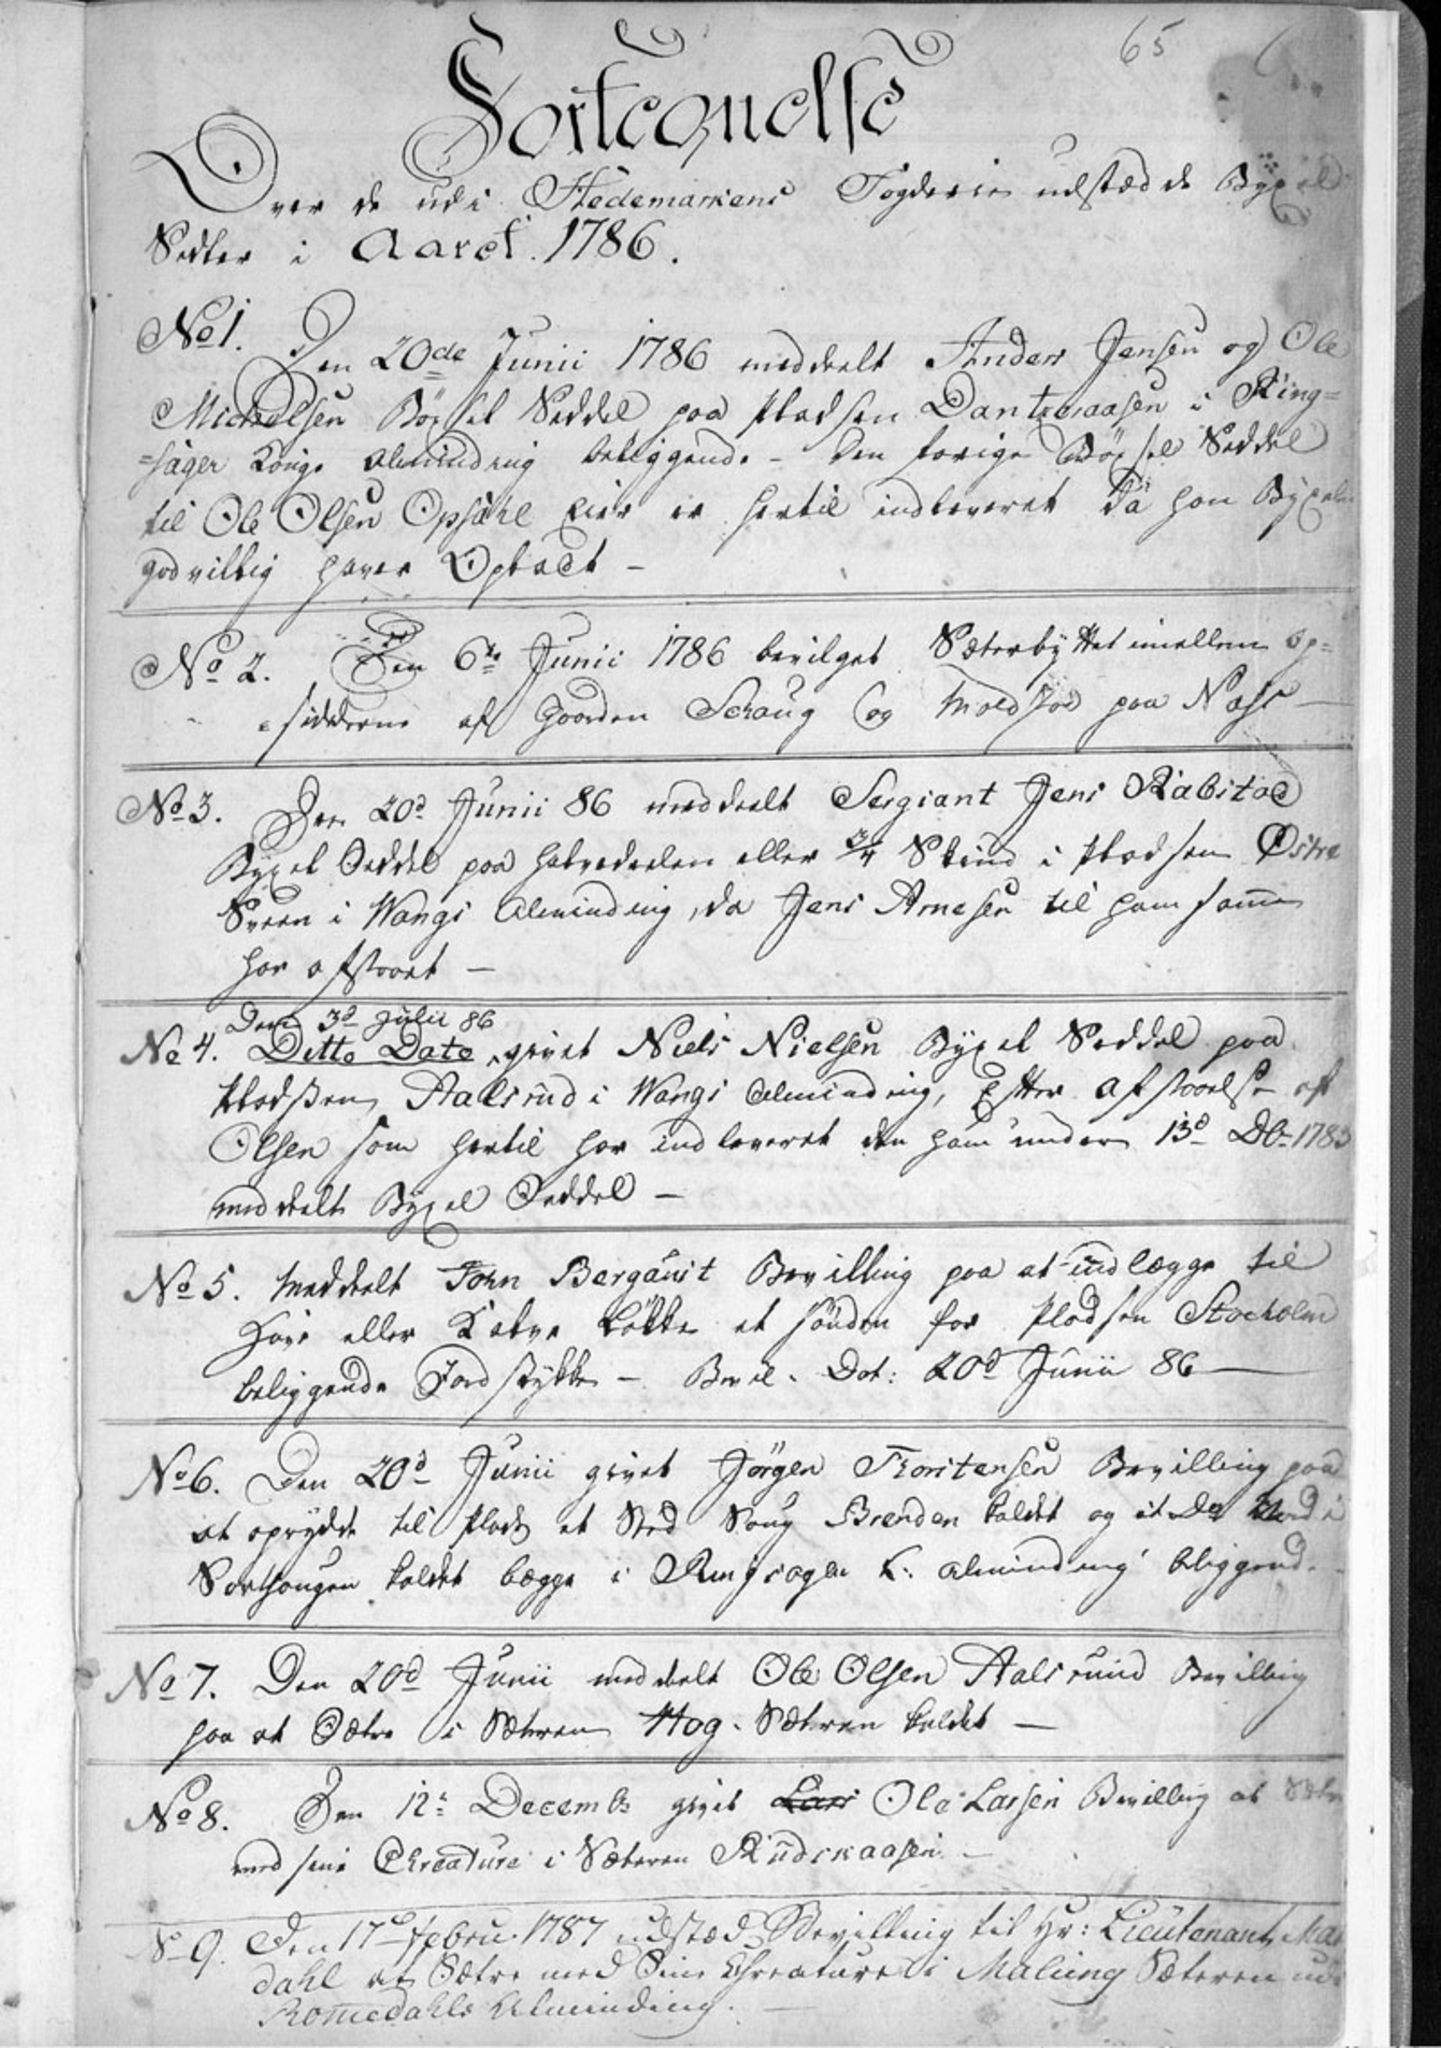 65
Fortegnelse
Over de udi Hedemarkens Fogderie udstædde Byxel
Sedler i Aaret. 1786.
No 1. Den 20de Junii 1786 meddeelt Anders Jensen og Ole
Michelsen Böxel Seddel paa Pladsen i Ring=
=sager Konge Alminding beliggende - Den forige Böxsel Seddel
til Ole Olsen Opsahl er hertil indleveret da han Byxelen
godvillig haver Opladt -
No 2. Den 6te Junii 1786 bevilget Sæterbyttet imellem op=
=sidderne af Gaarden Schaug og paa Næss -
No 3. Den 20d Junii 86 meddeelt Sergiant Jens Rabstad
Byxel Seddel paa halvedeelen eller 3/4 Skind i Pladsen Østre
Sveen i Wangs Alminding, da Jens Arnesen til ham samme
har afstaaet -
Den 3d Julii 86
No 4. Ditto Dato givet Niels Nielsen Byxel Seddel paa
Pladsen Aalsrud i Wangs Alminding, Efter afstaaelse af
Olsen som hertil har indleveret den ham under 13d Dbr 1783
meddeelte Byxel Seddel -
No 5. Meddeelt John Bergqvist Bevilling paa at indlægge til
Have eller Kalve Løkke et sönden for Pladsen Stocholm
beliggende Jordstykke - Bevil. Dat: 20d Junii 86 -
No 6. Den 20d Junii givet Jörgen Thorstensen Bevilling paa
at oprydde til Plads et Sted Braenden kaldet og et Do
kaldet begge i Ringsager K: Alminding beliggende
No 7. Den 20d Junii meddeelt Ole Olsen Aalsruud Bevilling
paa at Sætre i Sæteren Hog-Sæteren kaldet -
No 8. Den 12te Decembr givet Lars Ole Larsen Bevilling at Sætre
med sine Chreature i Sæteren Rudskaasen -
No 9. Den 17d Febru. 1787 udstæd Bevilling til Hr: Lieutenant
dahl at Sætre med Sine Chreature i Malung Sæteren udi
Romedahls Alminding. -